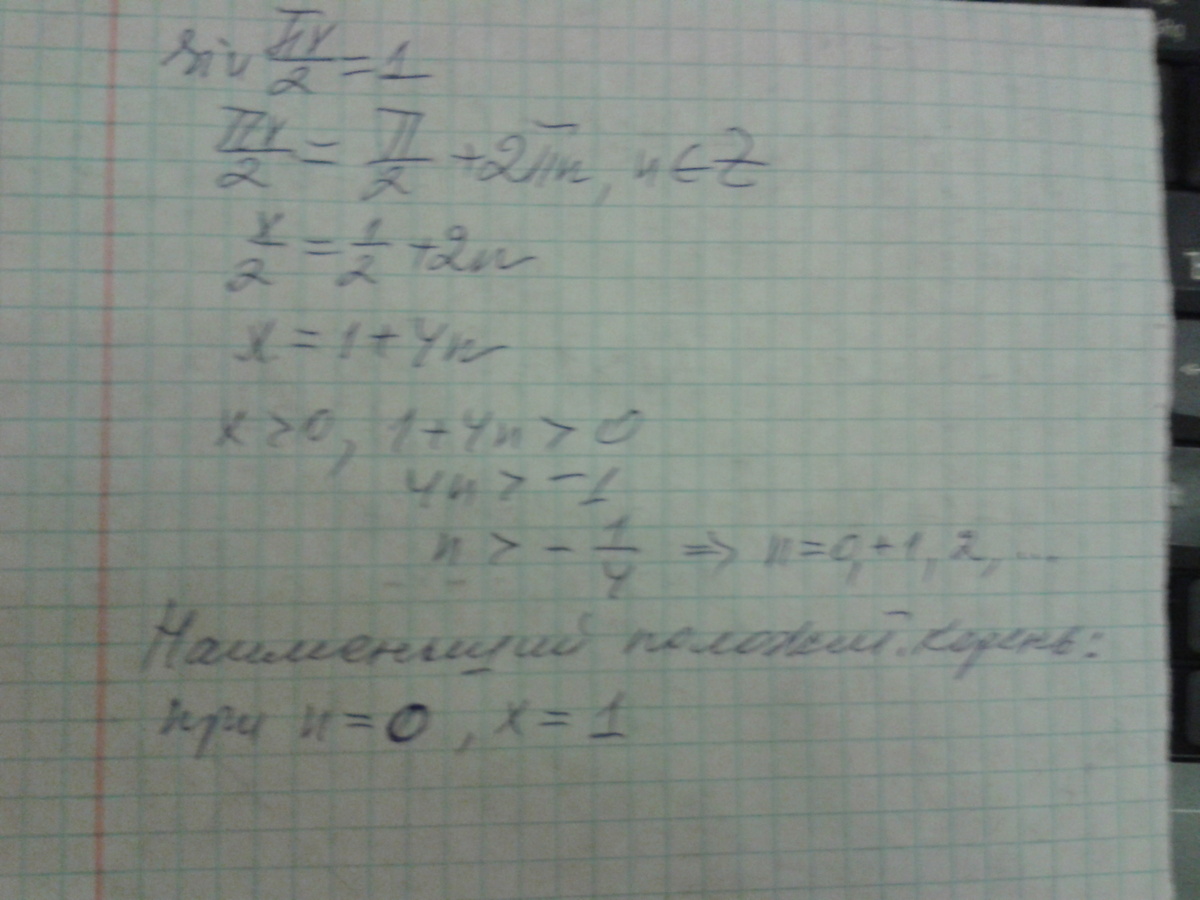 sin πx/2 = 1
πx/2 = π/2 + 2πn, n ∈ Z
x/2 = 1/2 + 2n
x = 1 + 4n
x > 0, 1 + 4n > 0
4n > -1
n > - 1/4 ⇒ n = 0, +1, 2, ...
Наименьший положит. корень:
при n = 0, x = 1